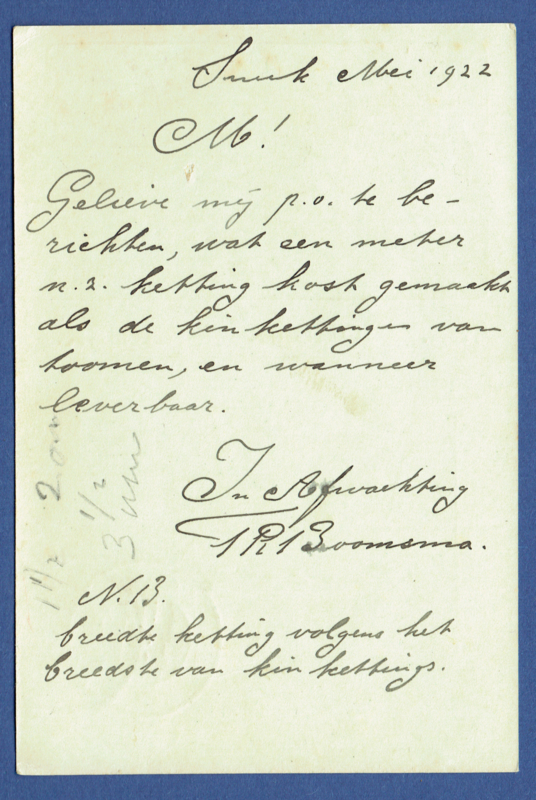 Sneek Mei 1922
M!
Gelieve mij p.o. te be-
richten, wat een meter
n.2. ketting kost gemaakt
als de kinkettingen van
toomen, en wanneer
leverbaar.
In Afwachting
Boomsma.
N.B.
breedte ketting volgens het
breedste van kinkettings.
1/2
3 mm